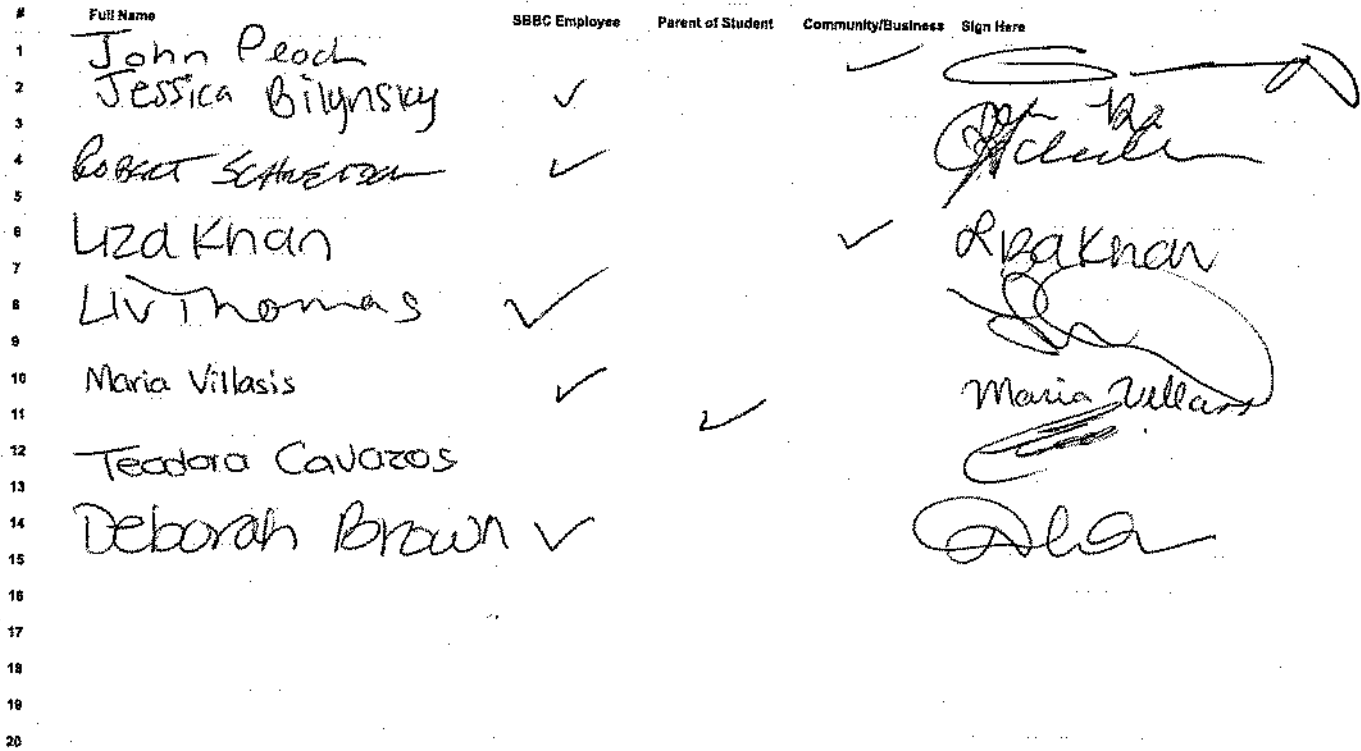 # Full Name SBBC Employee Parent of Student Community/Business Sign Here
1 John Peoch ✓
2 Jessica Bilynsky ✓
3
4 Robert ✓
5
6 Liza Khan ✓ Liza Khan
7
8 Liv Thomas ✓
9
10 Maria Villasis ✓ Maria Villasis
11 ✓
12 Teodora Cavazos
13
14 Deborah Brown ✓
15
16
17
18
19
20